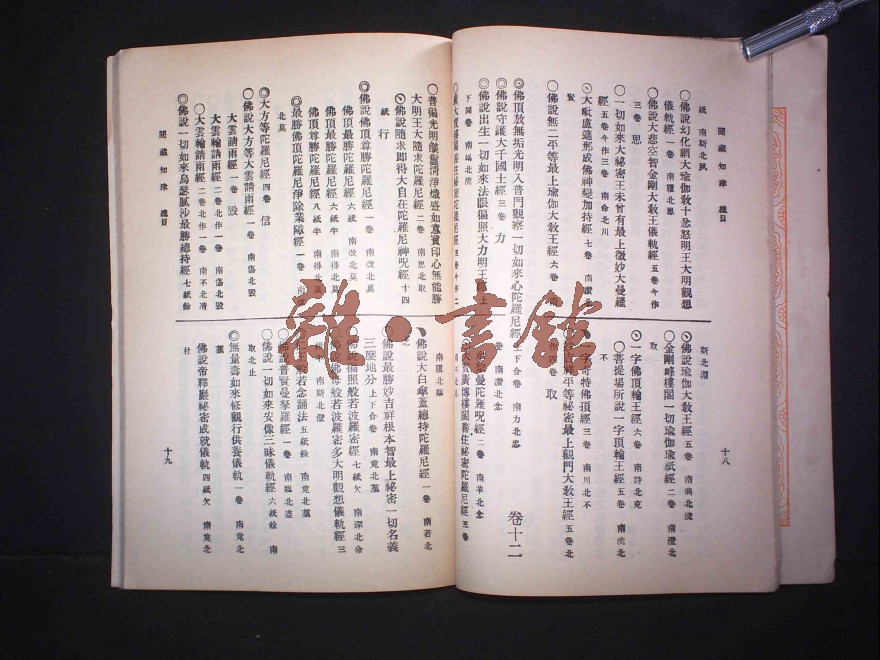 閱藏知津 總目
〇佛說幻化網大瑜伽敎十忿怒明王大明觀想
儀軌經 一卷 南履北思
〇佛說大悲空智金剛大敎王儀軌經 五卷今作
三卷 思
〇一切如來大祕密王未曾有最上微妙大曼羅
經 五卷今作三卷 南命北川
〇大毗盧遮那成佛神變加持經 七卷
賢
〇佛說無二平等最上瑜伽大敎王經 六卷
◎佛頂放無垢光明入普門觀察一切如來心陀羅尼經
◎佛說守護大千國土經 三卷 力
◎佛說出生一切如來法眼徧照大力明王經 上
下同卷
斯北淵
◎佛說瑜伽大敎王經 五卷 南興北流
〇金剛峰樓閣一切瑜伽瑜祇經 二卷 南澄北
取
〇一字佛頂輪王經 六卷 南詩北克
〇菩提場所說一字頂輪王經 五卷 南流北
不
字奇特佛頂經 三卷 南川北不
吉祥平等祕密最上觀門大敎王經 五卷北
四卷 取
下合卷 南力北忠
曼陀羅呪經 二卷 南羊北念
廣博樓閣善住祕密陀羅尼經 三卷
卷十二
十八
〇普徧光明燄鬘清淨熾盛如意寶印心無能勝
大明王大隨求陀羅尼經 二卷 南思北取
佛說隨求即得大自在陀羅尼神呪經 十四
紙 行
◎佛說佛頂尊勝陀羅尼經 一卷 南改北莫
佛頂最勝陀羅尼經 六紙 南改北莫
佛頂最勝陀羅尼經 六紙半 南得北莫
佛頂尊勝陀羅尼經 八紙半 南得北莫
最勝佛頂陀羅尼淨除業障經 一卷
北莫
◎大方等陀羅尼經 四卷 信
〇佛說大方等大雲請雨經 一卷 南傷北毀
大雲請雨經 一卷 毀
大雲輪請雨經 二卷北作一卷 南傷北毀
〇大雲輪請雨經 二卷北作一卷 南不北凊
◎佛說一切如來烏瑟膩沙最勝總持經 七紙餘
南履北臨
佛說大白傘蓋總持陀羅尼經 一卷 南若北
佛說最勝妙吉祥根本智最上祕密一切名義
三麽地分 上下合卷 南竟北薑
佛說徧照般若波羅密經 七紙欠 南深北命
佛母般若波羅密多大明觀想儀軌經 三
紙 南斯北澄
般若念誦法 五紙餘 南竟北薑
佛說普賢曼拏羅經 一卷 南臨北盡
〇佛說一切如來安像三昧儀軌經 六紙餘 南
取北止
◎無量壽如來修觀行供養儀軌 一卷 南竟北
薑
佛說帝釋巖祕密成就儀軌 四紙欠 南竟北
杜
閱藏知津 總目
十九
雜·書館